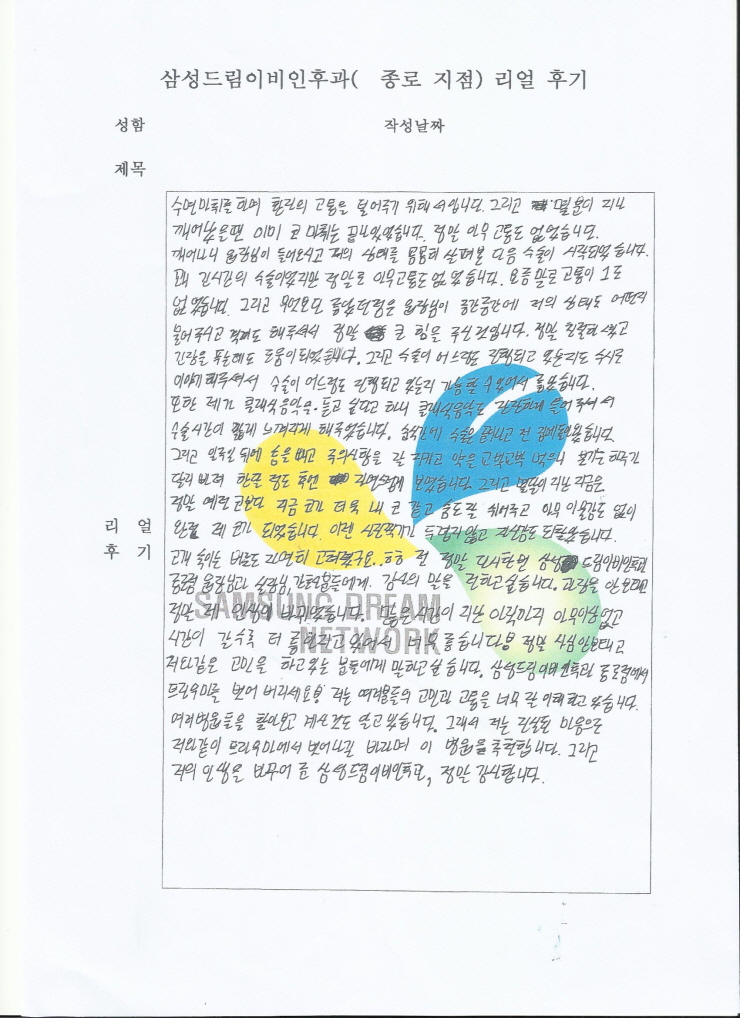 삼성드림이비인후과( 종로 지점) 리얼 후기
성함 작성날짜
제목
수면마취를 하며 환자의 고통을 덜어주기 위해서입니다. 그리고 몇분이 지나
깨어났을땐 이미 코 마취는 끝나있었습니다. 정말 아무 고통도 없었습니다.
깨어나니 원장님이 들어오시고 저의 상태를 꼼꼼히 살펴본 다음 수술이 시작되었습니다.
꽤 긴시간의 수술이었지만 정말로 아무고통도 없었습니다. 요즘말로 고통이 1도
없었습니다. 그리고 무엇보다 좋았던점은 원장님이 중간중간에 저의 상태도 어떤지
물어주시고 격려도 해주셔서 정말 큰 힘을 주신것입니다. 정말 친절하셨고
긴장을 푸는데도 도움이 되었습니다. 그리고 수술이 어느정도 진행되고 있는지도 수시로
이야기해주셔서 수술이 어느정도 진행되고 있는지 가늠할 수 있어서 좋았습니다.
또한 제가 클래식음악을 듣고 싶다고 하니 클래식음악도 잔잔하게 틀어주셔서
수술시간이 짧게 느껴지게 해주었습니다. 수술은 끝나고 전
그리고 일주일 뒤에 솜을 빼고 주의사항을 잘 지키고 약은 고박고박 먹으니 붓기는 하루가
달리 빠져 한달 정도 후엔 자연스럽게 보였습니다. 그리고 몇달이 지난 지금은
정말 예전 코보다 지금 코가 더욱 내 코 같고 숨도 잘 쉬어주고 아무 이물감도 없이
완전 제 코가 되었습니다. 이젠 사진찍기가 두렵지않고 자신감도 되찾았습니다.
고개 숙이는 버릇도 자연히 고쳐졌구요.. ㅎㅎ 전 정말 다시한번 삼성드림이비인후과
종로점 원장님과 실장님, 간호사분들에게 감사의 말을 전하고싶습니다. 과장을 안보태고
정말 제 인생이 바뀌었습니다. 많은시간이 지난 아직까지 아무이상없고
시간이 갈수록 더 좋아지고 있어서 너무 좋습니다. 정말 사심 안보태고
저와같은 고민을 하고있는 분들에게 말하고싶습니다. 삼성드림이비인후과 종로점에서
트라우마를 벗어 버리세요. 저는 여러분들의 고민과 고통을 너무 잘 이해하고 있습니다.
여러병원들을 찾아보고 계신것도 알고있습니다. 그래서 저는 진심된 마음으로
저와같이 트라우마에서 벗어나길 바라며 이 병원을 추천합니다. 그리고
저의 인생을 바꾸어 준 삼성드림이비인후과, 정말 감사합니다.
리 얼
후 기
SAMSUNG DREAM
NETWORK